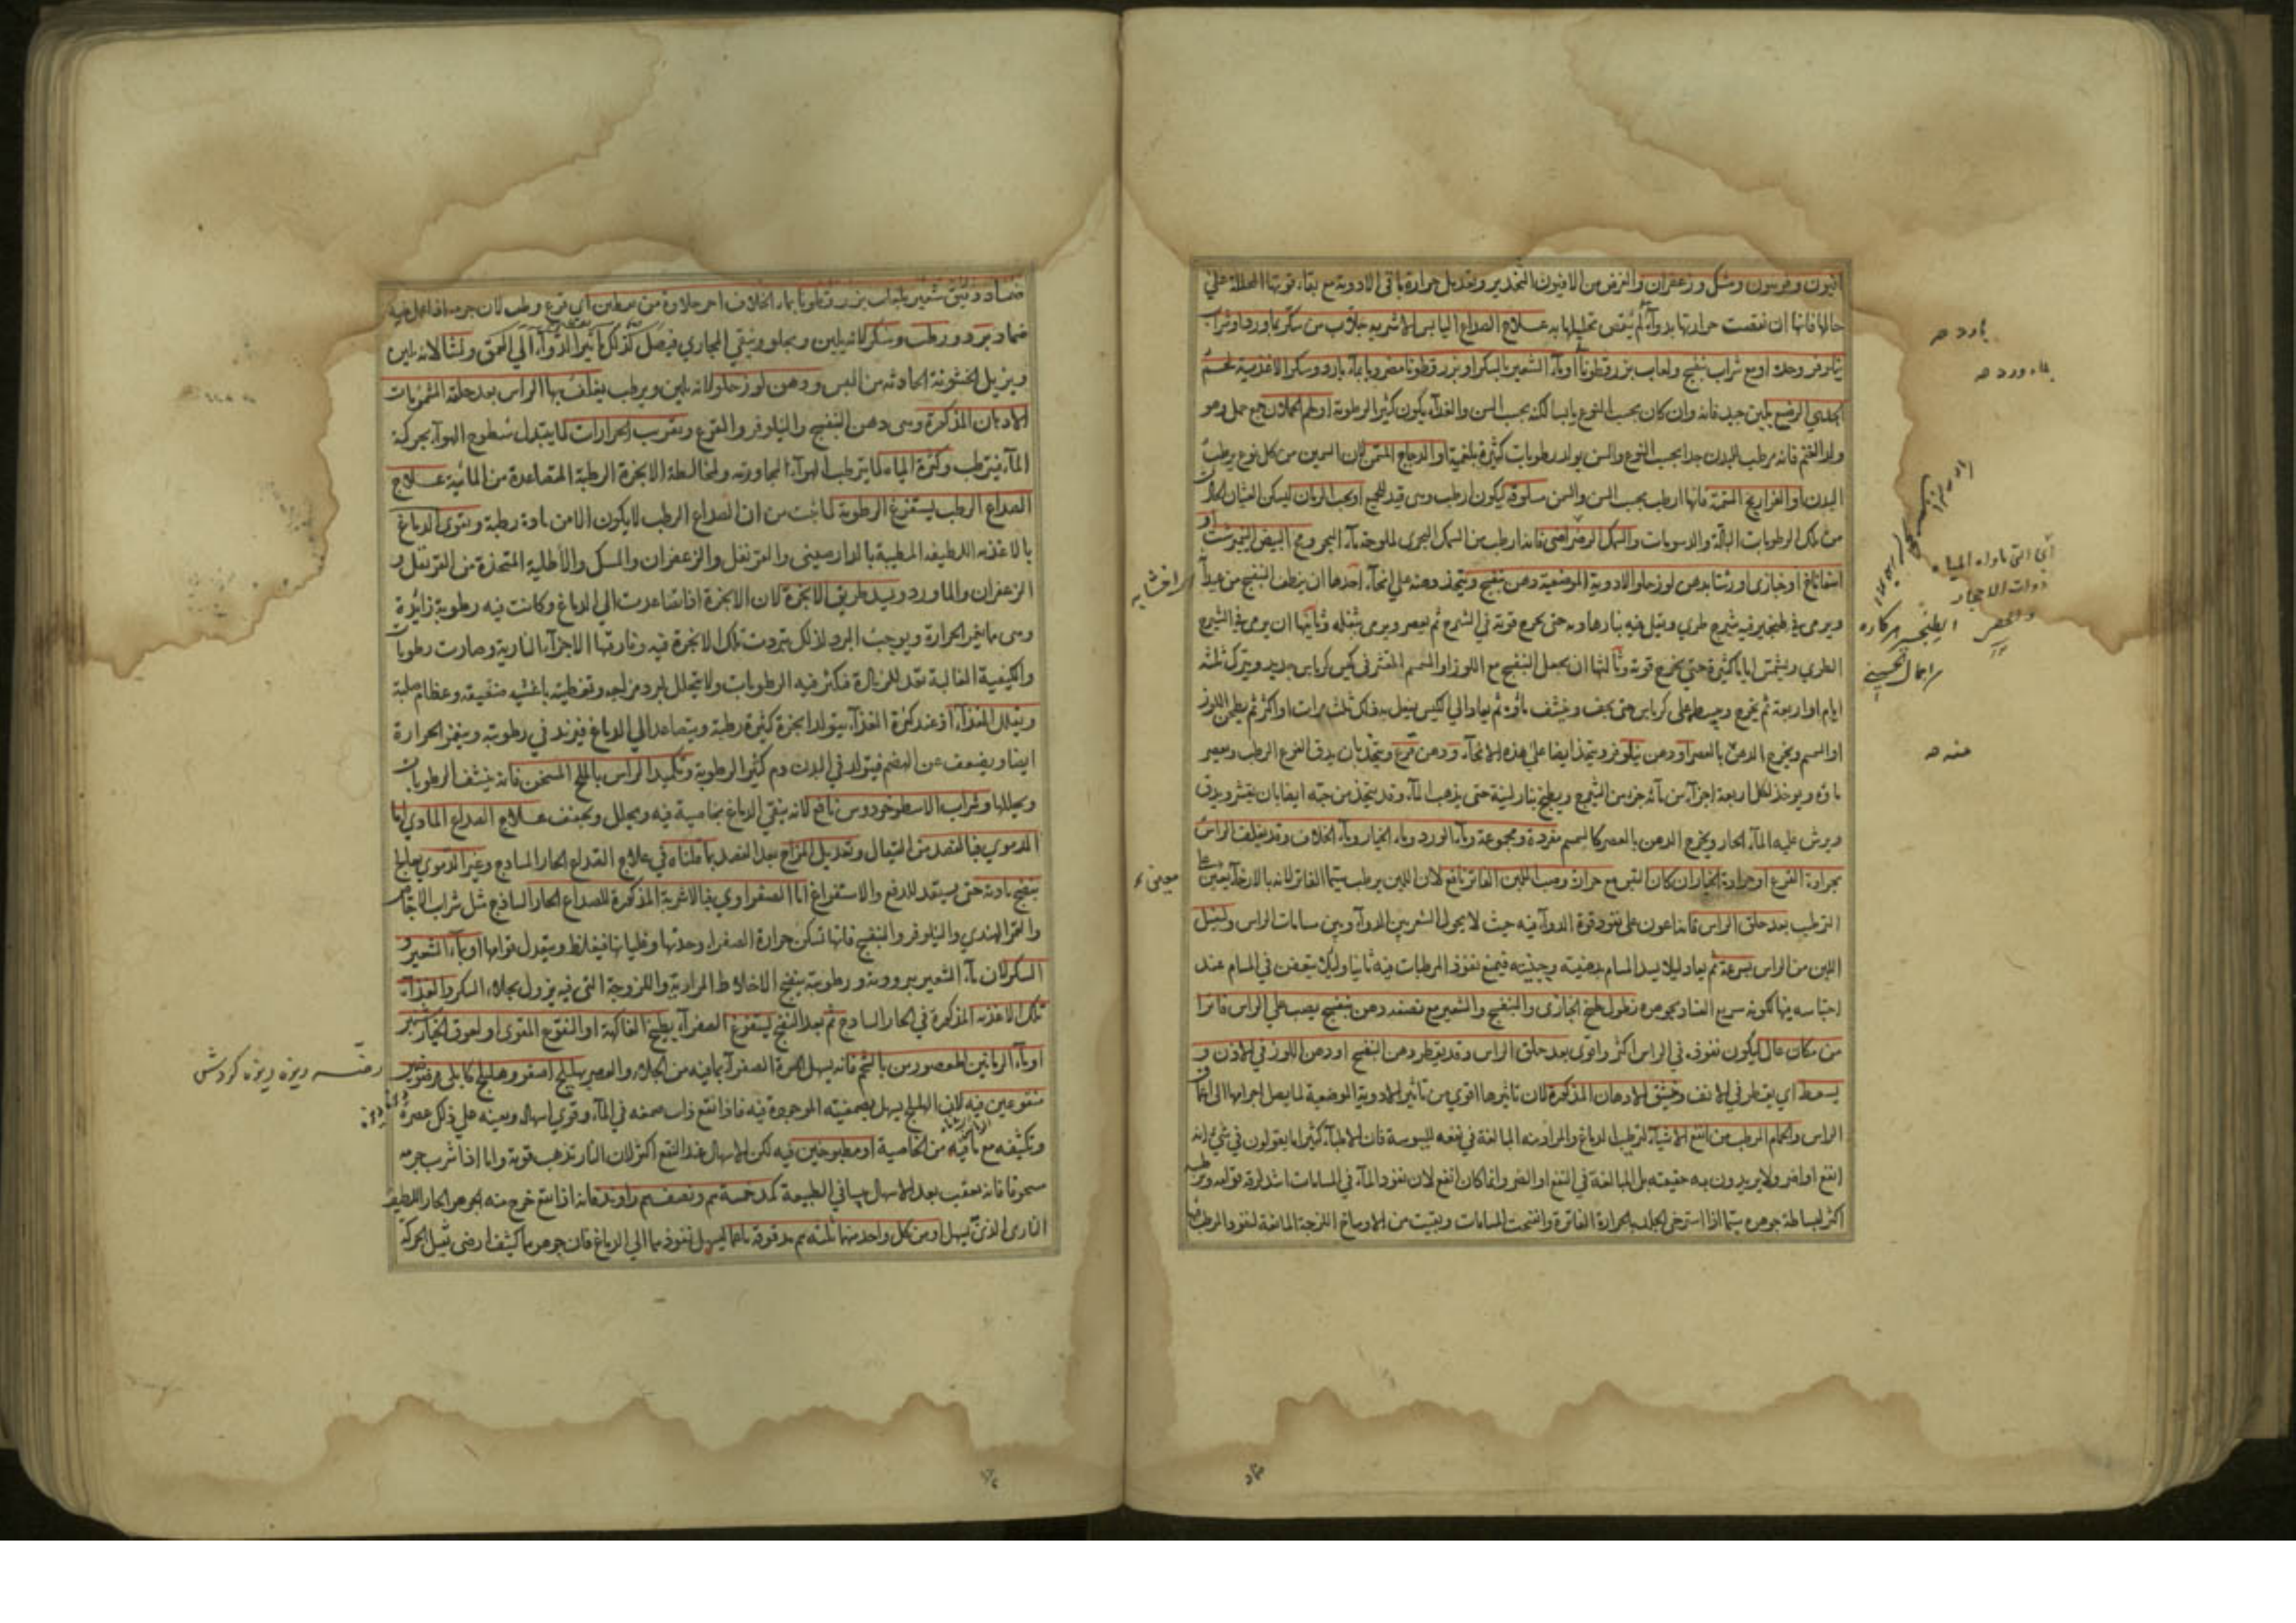 افيون وفربيون ومسك وزعفران والغرض من الافيون التخدير وتعديل حرارة باقى الادوية مع بقاء قوتها المحللة على
حالها فانها ان نقصت حرارتها بدواء لم ينقص تحليلها به علاج الصداع اليابس الاشربة جلاب من سكر بماورد او شراب
نيلوفر وحده او مع شراب بنفسج ولعاب بزرقطونا او ماء الشعير بالسكر او بزرقطونا مضروبا بماء بارد وسكر الاغذية لحم
الجدي الرضيع بلبن جيد فانه وان كان بحسب النوع يابسا لكنه بحسب السن والغذاء يكون كثير الرطوبة او لحم الحملان جمع حمل وهو
ولد الغنم فانه مرطب للبدن جدا بحسب النوع والسن يولد رطوبات كثيرة بلغمية او الدجاج المسمن لان السمين من كل نوع يرطب
البدن او الفراريج المسمنة فانها ارطب بحسب السن والسمن مسلوقة ليكون ارطب وهى قيد للجميع او بحب الرمان ليسكن الغثيان الحادث
من تلك الرطوبات البالة والدسومات والسمك الرضراضى فانه ارطب من السمك البحرى لملوحة ماء البحر ومح البيض النيمرشت او
اسفاناخ او خبازى او رشتا بدهن لوز حلو الادوية الموضعية دهن بنفسج ويتخذ دهنه على انحاء احدها ان ينظف البنفسج من عيدانه
ويرمى فى طنجير فيه شيرج طري ويقلى فيه بنار هادية حتى يخرج قوته فى الشيرج ثم يعصر ويرمى بثفله وثانيها ان يرمى فى الشيرج
الطري ويشمس اياما كثيرة حتى يخرج قوته وثالثها ان يجعل البنفسج مع اللوز او السمسم المقشر فى كيس كرباس جديد ويترك ثلثة
ايام او اربعة ثم يخرج ويبسط على كرباس حتى يجف وينشف ماؤه ثم يعاد الى الكيس يفعل به ذلك ثلث مرات او اكثر ثم يطحن اللوز
او السمسم ويخرج الدهن بالعصر او دهن نيلوفر ويتخذ ايضا على هذه الانحاء ودهن قرع ويتخذ بان يدق القرع الرطب ويعصر
ماؤه ويوخذ لكل اربعة اجزاء من مائه جزء من الشيرج ويطبخ بنار لينة حتى يذهب الماء وقد يتخذ من حبه ايضا بان يقشر ويدق
ويرش عليه الماء الحار ويخرج الدهن بالعصر كالسمسم مفردة ومجموعة وماء الورد وماء الخيار وماء الخلاف وقد يغلف الراس
بجرادة القرع او جرادة الخيار ان كان اليبس مع حرارة وصب اللبن الفاتر نافع لان اللبن يرطب سيما الفاتر لانه بالارخاء يعين على
الترطيب بعد حلق الراس فانه اعون على نفوذ قوة الدواء فيه حيث لا يحول الشعر بين الدواء وبين مسامات الراس وليغسل
اللبن من الراس بسرعة ثم يعاد ليلا يسد المسام بدهنيته وجبنيته فيمنع نفوذ المرطبات فيه ثانيا وليلا يتعفن فى المسام عند
احتباسه فيها لكونه سريع الفساد بجوهره نطول طبخ الخبازى والبنفسج والشعير مع نصفه دهن بنفسج يصب على الراس فاترا
من مكان عال ليكون نفوذه فى الراس اكثر واقوى بعد حلق الراس وقد يقطر دهن البنفسج او دهن اللوز فى الاذن و
يسعط اي يقطر فى الانف وينشق الادهان المذكورة لان تاثيرها اقوى من تاثير الادوية الوضعية لما يصل اجرامها الى اعماق
الراس والحمام الرطب من انفع الاشياء لترطيب الدماغ والمراد منه المبالغة فى نفعه لليبوسة فان الاطباء كثيرا ما يقولون فى شئ انه
انفع او اضر ولا يريدون به حقيقته بل المبالغة فى النفع او الضر وانما كان انفع لان نفوذ الماء فى المسامات اشد لرقة قوامه وترطيبه
اكثر لبساطة جوهره سيما اذا استرخى الجلد بالحرارة الفاترة وانفتحت المسامات ونقيت من الاوساخ اللزجة المانعة لنفوذ المرطب فيها
ماورد
اى التى ماواه المياه
ذوات الاحجار
والخضر
منه
ضماد دقيق شعير بلعاب بزرقطونا بماء الخلاف اخر حلاوة من سطين اي قرع رطب لان جرمه اذا عمل فيه
ضماد يبرد ويرطب وسكر لانه يلين ويجلو وينقي المجاري فيصل كذلك تاثير الدواء الى العمق ونشا لانه يلين
ويزيل الخشونة الحادثة من اليبس ودهن لوز حلو لانه يلين ويرطب يغلف بها الراس بعد حلقه المشمومات
الادهان المذكورة وهى دهن البنفسج والنيلوفر والقرع وتقريب الخرارات لما يتبدل سطوح الهواء بحركة
الماء فيترطب وكثرة المياه لما يترطب الهواء المجاور ته ولمخالطة الابخرة الرطبة المتصاعدة من المائية علاج
الصداع الرطب يستفرغ الرطوبة لما ثبت من ان الصداع الرطب لا يكون الا من مادة رطبة ويقوى الدماغ
بالاغذية اللطيفة المطيبة بالدارصينى والقرنفل والزعفران والمسك والاطلية المتخذة من القرنفل و
الزعفران والماورد ويسد طريق الابخرة لان الابخرة اذا تصاعدت الى الدماغ وكانت فيه رطوبة زائدة
وهى ما يغمر الحرارة ويوجب البرد لذلك تبردت تلك الابخرة فيه وفارقتها الاجزاء النارية وصارت رطوبات
والكيفية الغالبة تعد للزيادة فكثر فيه الرطوبات ولا تتحلل لبرد مزاجه وتغطيته باغشية صفيقة وعظام صلبة
ويقلل الغذاء اذ عند كثرة الغذاء يتولد ابخرة كثيرة رطبة ويتصاعد الى الدماغ فيزيد فى رطوبته وينغمر الحرارة
ايضا ويضعف عن الهضم فيتولد فى البدن دم كثير الرطوبة وتكميد الراس بالملح المسخن فانه ينشف الرطوبات
ويحللها وشراب الاسطوخودوس نافع لانه ينقي الدماغ بخاصية فيه ويحلل ويجفف علاج الصداع المادي اما
الدموي فبالفصد من القيفال وتعديل المزاج بعد الفصد بما قلناه في علاج الصداع الحار الساذج وغير الدموي يعالج
بنضج مادته حتى يستعد للدفع والاستفراغ اما الصفراوي فبالاشربة المذكورة للصداع الحار الساذج مثل شراب الاجاص
والتمر الهندي والنيلوفر والبنفسج فانها تسكن حرارة الصفراء وحدتها وغليانها فيغلظ ويتعدل قوامها او بماء الشعير و
السكر لان ماء الشعير ببرودته ورطوبته ينضج الاخلاط المرارية واللزوجة التى فيه يزول بجلاء السكر والغذاء
تلك الاغذية المذكورة في الحار الساذج ثم بعد النضج يستفرغ الصفراء بطبخ الفاكهة او النقوع المقوى او لعوق الخيارشنبر
او ماء الرمانين المعصورين بالشحم فانه يسهل المرة الصفراء بما فيه من الجلاء والعصر بهليلج اصفر وهليلج كابلى مرضوضين
منقوعين فيه لان الهليلج يسهل بصمغيته الموجودة فيه فاذا انتقع ذاب صمغه في الماء وقوي اسهاله ويعينه على ذلك عصره
وتكثيفه مع ما فيه من الخاصية او مطبوخين فيه لكن الاسهال عند النقع اكثر لان النار تذهب قوته واما اذا شرب جرمه
مسحوقا فانه يعقب بعد الاسهال يبسا في الطبيعة كمد خمسة دراهم ونصف درهم راوند فانه اذا انتقع خرج منه الجوهر الحار اللطيف
النارى الذى يسهل او من كل واحد منهما ثلثة دراهم مدقوقة ناعما ليسهل نفوذهما الى الدماغ فان جوهرهما كثيف ارضى ثقيل الحركة
رضه ريزه ريزه كردش